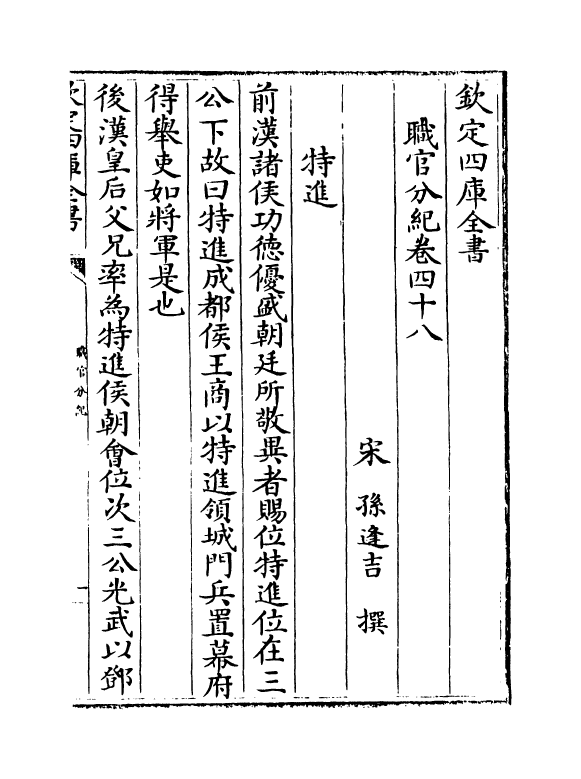 欽定四庫全書
職官分紀卷四十八
宋 孫逢吉 撰
特進
前漢諸侯功德優盛朝廷所敬異者賜位特進位在三
公下故曰特進成都侯王商以特進領城門兵置幕府
得舉吏如將軍是也
後漢皇后父兄率為特進侯朝會位次三公光武以鄧
欽定四庫全書
職官分紀
一